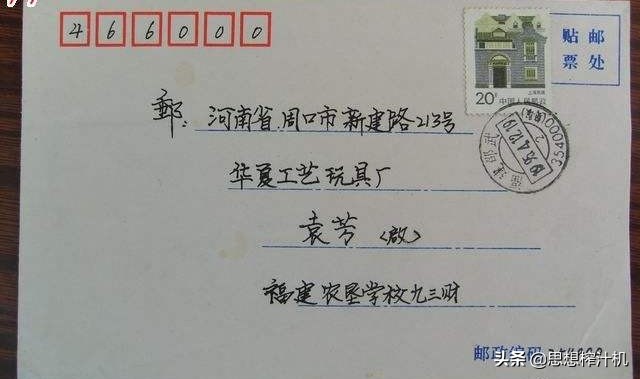 466000
贴邮
票处
上海民居
20分 中国人民邮政
郵: 河南省周口市新建路213号
354000
福建邵武
1995.4.12.19
华夏工艺玩具厂
袁芳 (啟)
福建农垦学校九三财
邮政编码
头条 @思想榨汁机